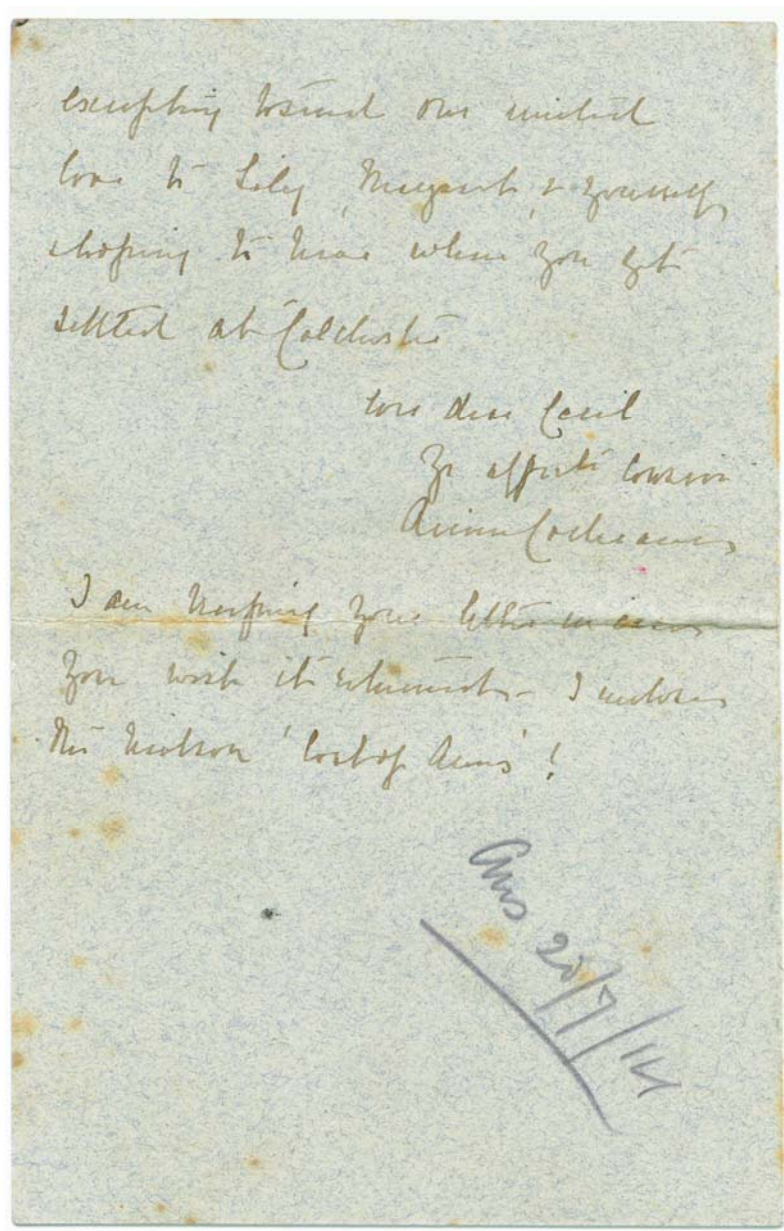 excepting to send our united
love to Lily, Margaret, & yourself,
& hoping to hear when you get
settled at Colchester
dear Cecil
Yr affecte cousin
Cochrane
I am keeping your letter in case
you wish it returned - I enclose
the 'Coat of Arms'!
Ans 20/7/14